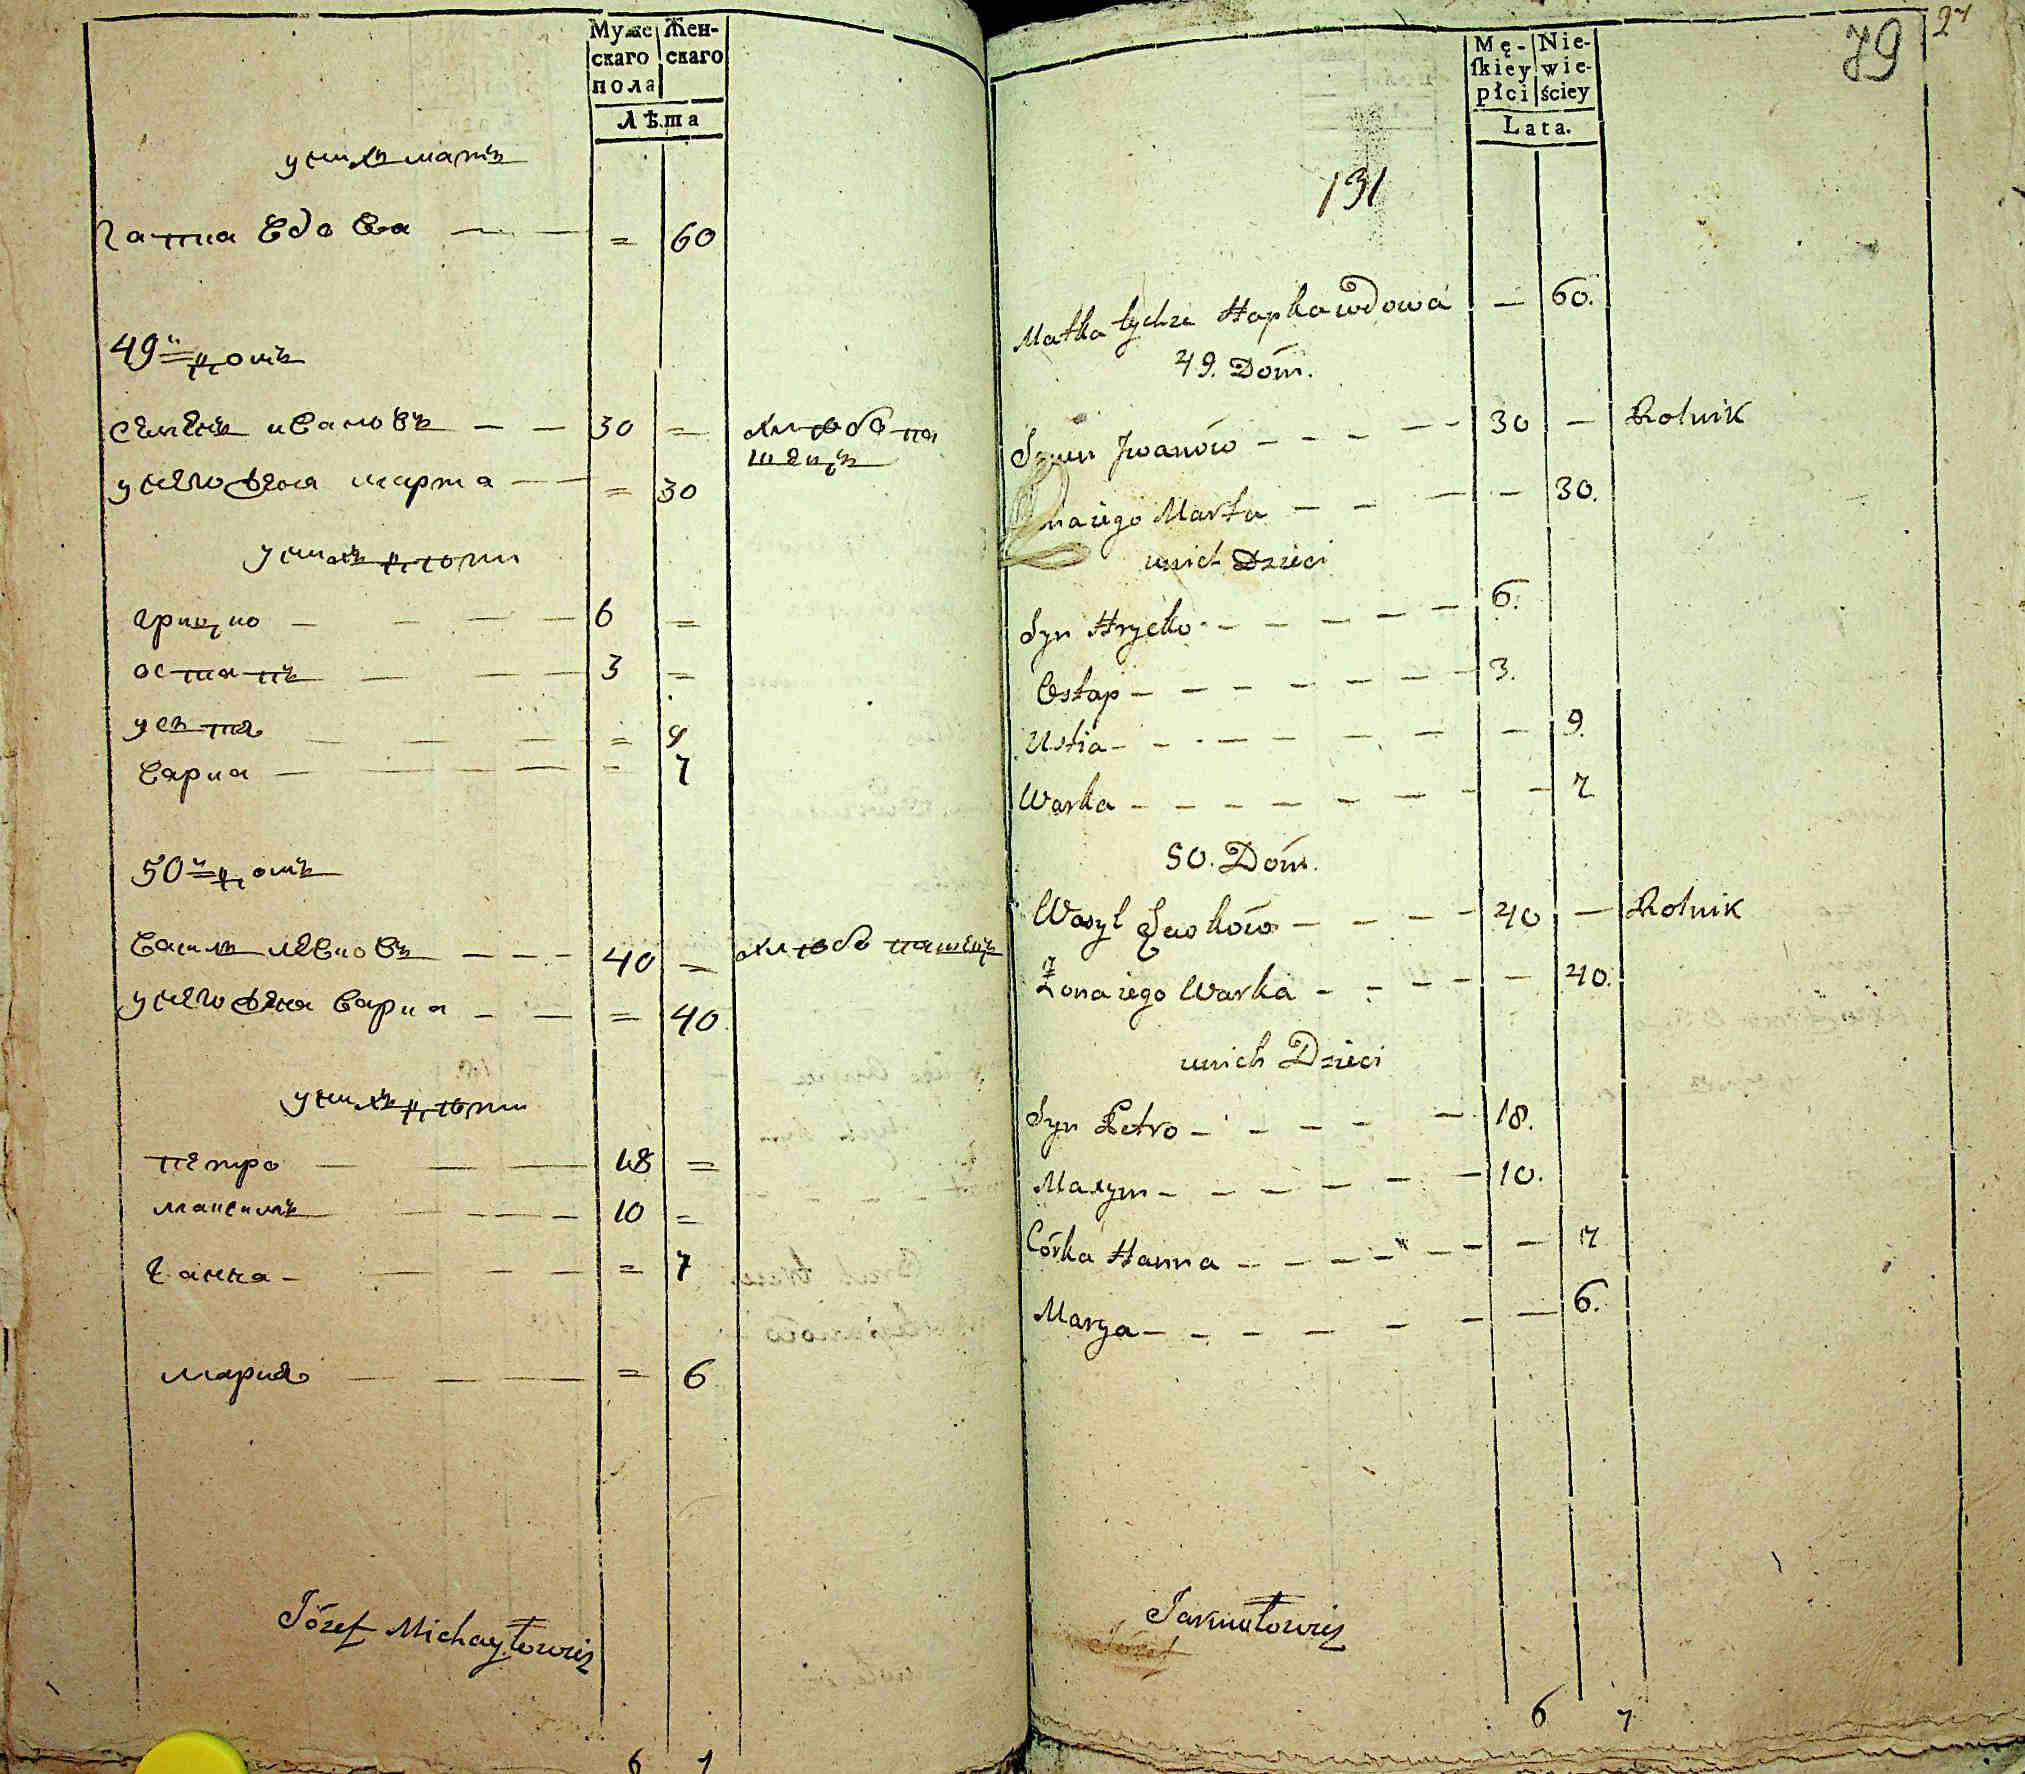 Муже Жен-
скаго скаго
пола
Лѣта
у нихъ мать
гапка вдова — — = 60
49й домъ
Семенъ ивановъ — — 30 = хлѣбопа
шецъ
у него жена марта — — = 30
у нихъ дѣти
грицко — — — — 6 =
остапъ — — — 3 =
устя — — — = 9
варка — — — — = 7
50й домъ
василь левковъ — — — 40 = хлѣбопашецъ
у него жена варка — — = 40
у нихъ дѣти
петро — — — 18 =
максимъ — — — — 10 =
ганна — — — — = 7
мария — — — — = 6
Józef Michayłowicz
6 7
79
Mę- Nie-
ſkiey wie-
płci ściey
Lata.
131
Matka tychże Hapka wdowa — 60.
49. Dóm.
Semen Jwanów — — — — — 30 — Rolnik
Żona iego Marta — — — — 30.
u nich Dzieci
Syn Hrycko — — — — — 6.
Ostap — — — — — — — 3.
Ustia — — — — — — — 9.
Warka — — — — — — — — 7
50. Dóm.
Wasyl Lewków — — — — 40 — Rolnik
Żona iego Warka — — — — — 40.
u nich Dzieci
Syn Petro — — — — — 18.
Maxym — — — — — — 10.
Córka Hanna — — — — — — — 7
Marya — — — — — — — 6.
6 7